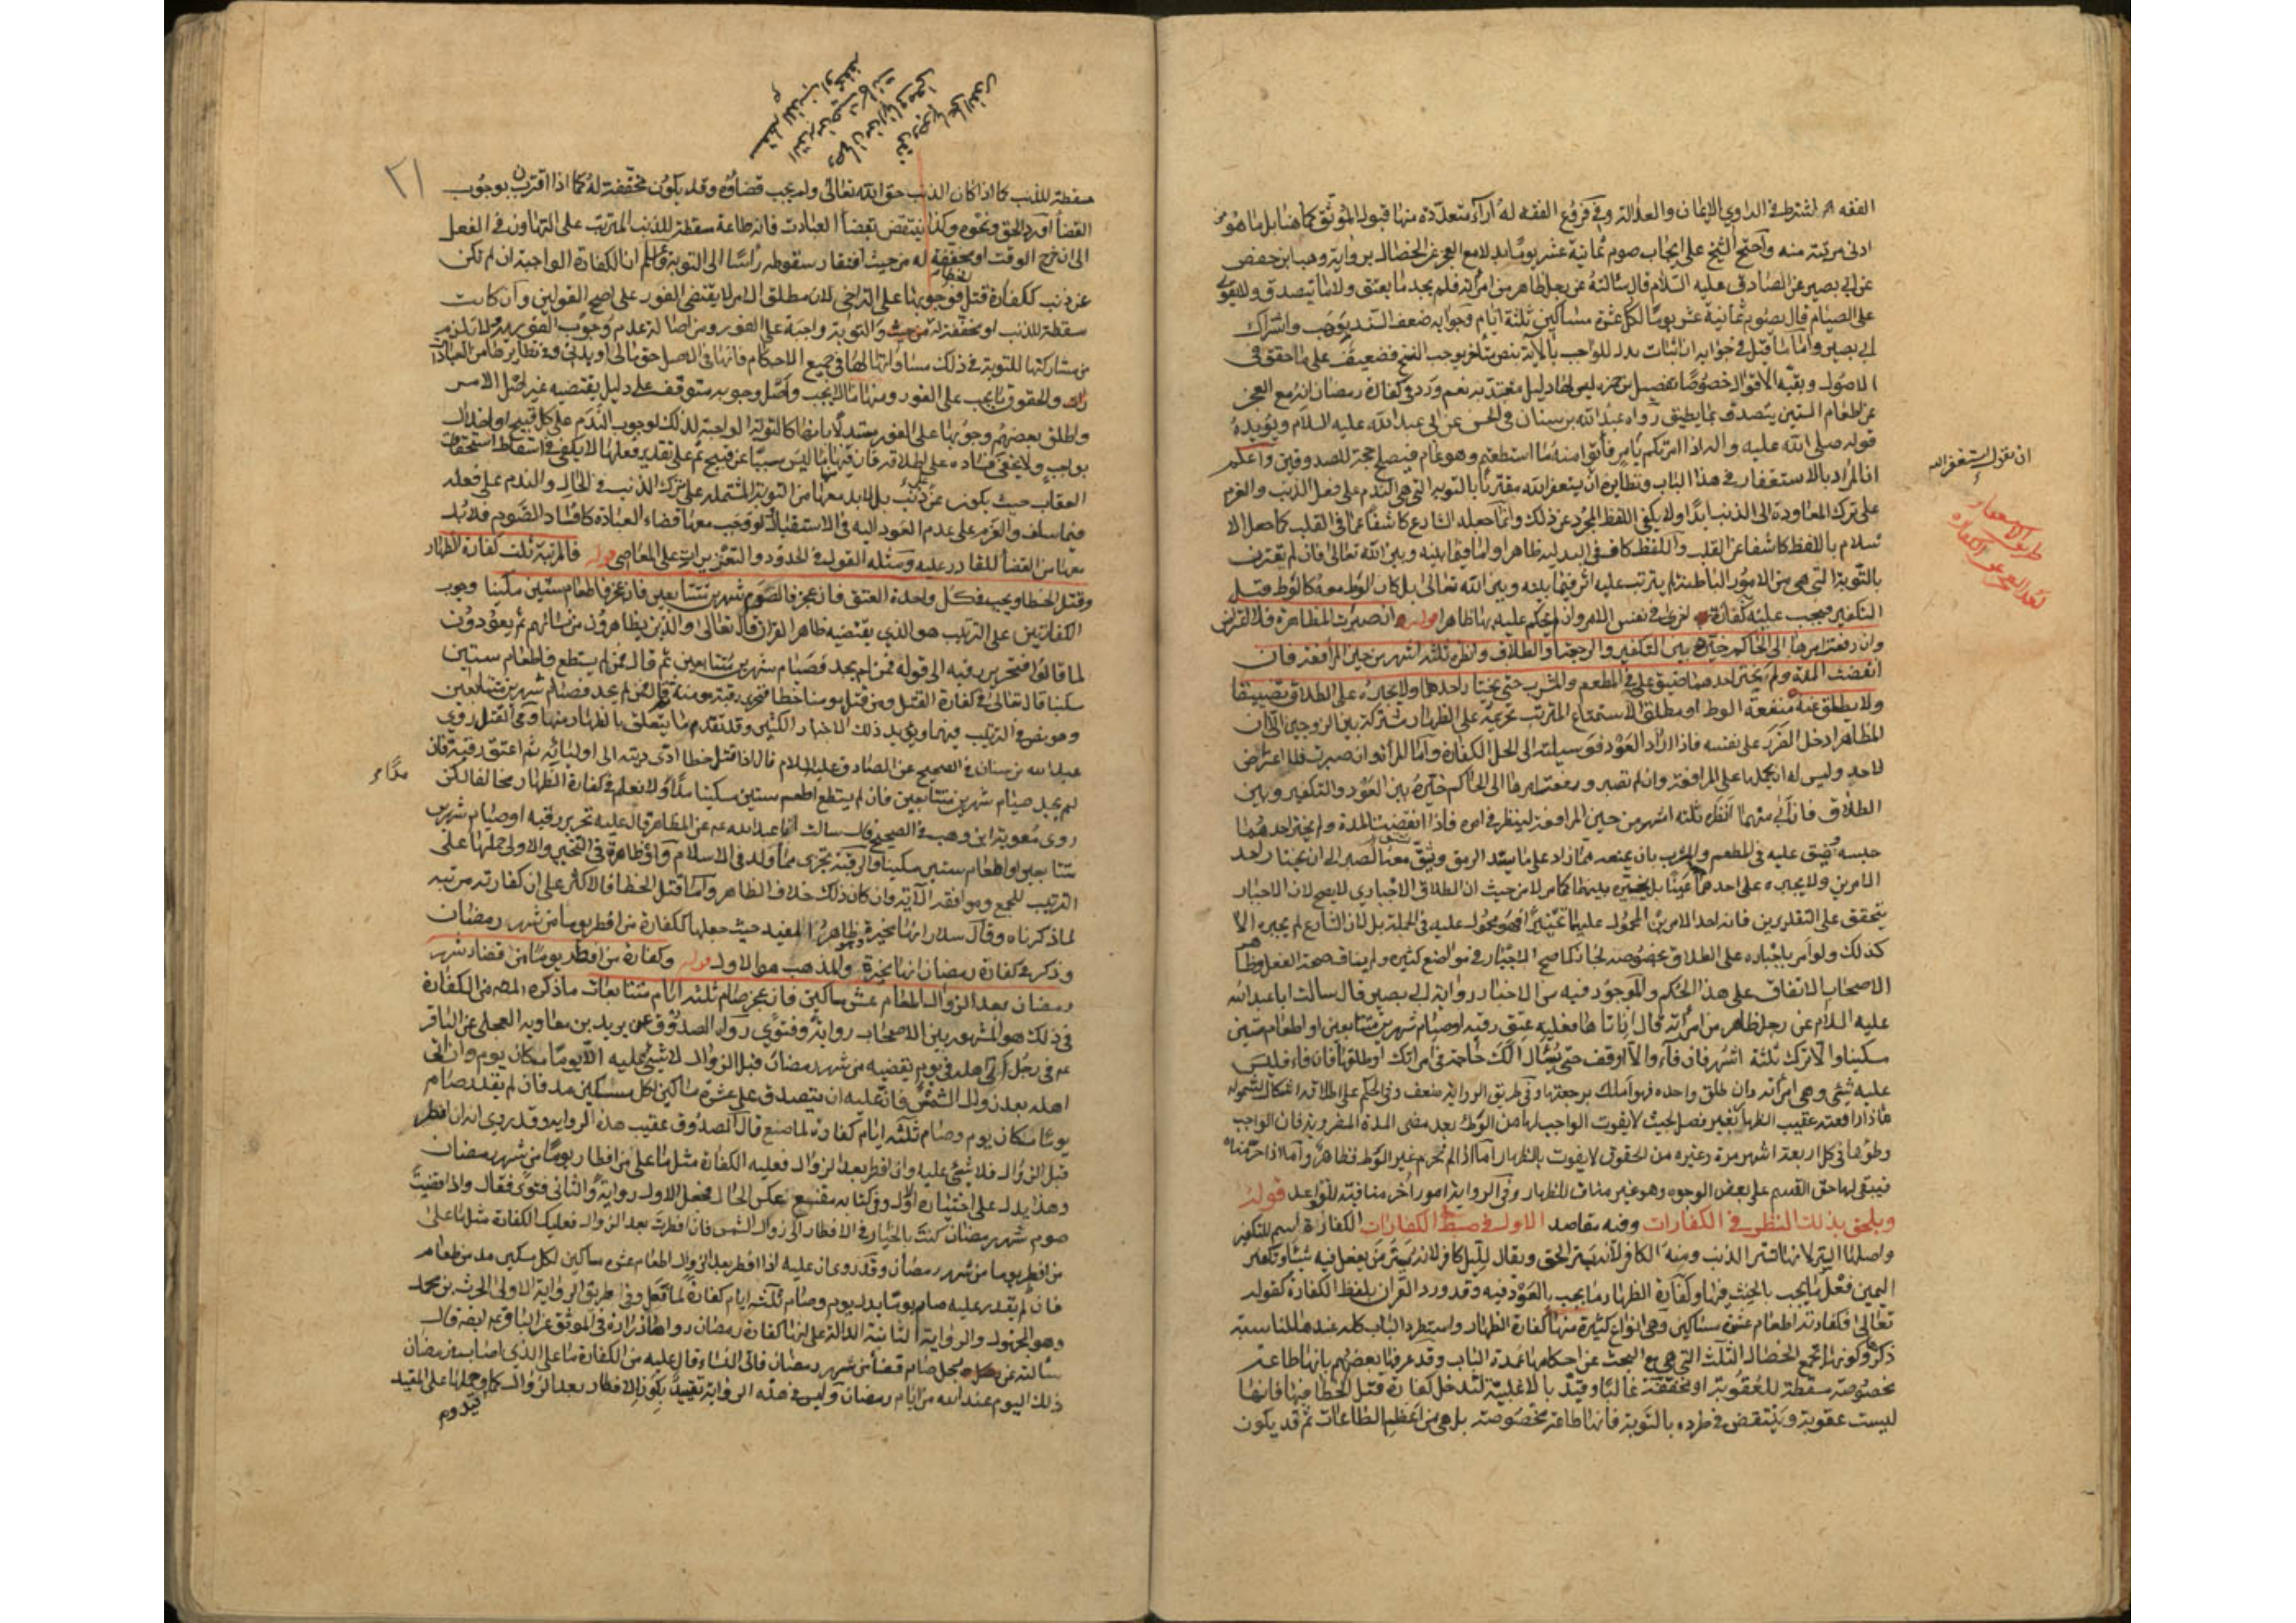 الفقه اشترط في الراوي الايمان والعدالة وفي فروع الفقه له آراء متعددة منها قبول الموثق كما هنا بل ما هو
ادنى مرتبة منه واحتج الشيخ على ايجاب صوم ثمانية عشر يوما بدلا مع العجز عن الخصال برواية وهب ابن حفص
عن ابي بصير عن الصادق عليه السلام قال سالته عن رجل ظاهر من امرأته فلم يجد ما يعتق ولا ما يتصدق ولا يقوى
على الصيام قال يصوم ثمانية عشر يوما لكل عشرة مساكين ثلثة ايام وجوابه ضعف السند بوهب واشتراك
ابي بصير واما ما قيل في جوابه ان اثبات بدل للواجب بالآية بنص متأخر يوجب النسخ فضعيف على ما حقق في
الاصول وبقية الاقوال خصوصا تفصيل ابن حمزة ليس لها دليل معتد به نعم ورد في كفارة رمضان انه مع العجز
عن اطعام الستين يتصدق بما يطيق رواه عبد الله بن سنان في الحسن عن ابي عبد الله عليه السلام ويؤيده
قوله صلى الله عليه واله اذا امرتكم بأمر فأتوا منه ما استطعتم وهو عام فيصلح حجة للصدوقين واعلم
ان المراد بالاستغفار في هذا الباب ونظايره ان يستغفر الله مقترنا بالتوبة التي هي الندم على فعل الذنب والعزم
على ترك المعاودة الى الذنب ابدا ولا يكفي اللفظ المجرد عن ذلك وانما جعله الشارع كاشفا عما في القلب كما جعل الا
سلام باللفظ كاشفا عن القلب واللفظ كاف في البدلية ظاهرا واما فيما بينه وبين الله تعالى فان لم يقترن
بالتوبة التي هي من الامور الباطنة لم يترتب عليه اثر فيما بينه وبين الله تعالى بل كان الوطي معه كالوطي قبل
التكفير فيجب عليه كفارة اخرى في نفس الامر وان لم يحكم عليه بها ظاهرا قوله ان صبرت المظاهرة فلا اعتراض
وان رفعت امرها الى الحاكم خيره بين التكفير والرجعة والطلاق وانظره ثلثة اشهر من حين المرافعة فان
انقضت المدة ولم يختر احدهما ضيق عليه في المطعم والمشرب حتى يختار احدهما ولا يجبره على الطلاق تضييقا
ولا يطلق عنه منفعة الوطي او مطلق الاستمتاع المترتب تحريمه على الظهار مشتركة بين الزوجين الا ان
المظاهر ادخل الضرر على نفسه فاذا اراد العود فوسيلته الى الحل الكفارة واما المرأة فان صبرت فلا اعتراض
لاحد وليس له ان يحملها على المرافعة وان لم تصبر ورفعت امرها الى الحاكم خيره بين العود والتكفير وبين
الطلاق فان أبى منهما انظره ثلثة اشهر من حين المرافعة لينظر في امره فاذا انقضت المدة ولم يختر احدهما
حبسه وضيق عليه في المطعم والمشرب بان يمنعه مما زاد على ما يسد الرمق ويشق معه الصبر الى ان يختار احد
الامرين ولا يجبره على احدهما عينا بل يخيره بينهما كما مر لا من حيث ان الطلاق الاجباري لا يصح لان الاجبار
يتحقق على التقديرين فانه احد الامرين المحمول عليهما تخييرا فهو محمول عليه في الجملة بل لان الشارع لم يجبره الا
كذلك ولو امر باجباره على الطلاق بخصوصه لجاز كما صح الاجبار في مواضع كثيرة ولم يناف صحة الفعل وظاهر
الاصحاب الاتفاق على هذا الحكم والموجود فيه من الاخبار رواية ابي بصير قال سالت ابا عبد الله
عليه السلام عن رجل ظاهر من امرأته قال ان اتاها فعليه عتق رقبة او صيام شهرين متتابعين او اطعام ستين
مسكينا والا ترك ثلثة اشهر فان فاء والا اوقف حتى يسأل ألك حاجة في امراتك او تطلقها فان فاء فليس
عليه شيء وهي امرأته وان طلق واحدة فهو املك برجعتها وفي طريق الرواية ضعف وفي الحكم على اطلاقه اشكال لشموله
ما اذا رافعته عقيب الظهار بغير فصل بحيث لا يفوت الواجب لها من الوطي بعد مضي المدة المضروبة فان الواجب
وطؤها في كل اربعة اشهر مرة وغيره من الحقوق لا يفوت بالظهار اما اذا لم نحرم غير الوطي فظاهر واما اذا حرمناه
فيبقى لها حق القسم على بعض الوجوه وهو غير مناف للظهار وفي الرواية امور اخر منافية للقواعد قوله
ويلحق بذلك النظر في الكفارات وفيه مقاصد الاول في ضبط الكفارات الكفارة اسم للتكفير
واصلها الستر لانها تستر الذنب ومنه الكافر لانه يستر الحق ويقال لليل كافر لانه يستر من يفعل فيه شيئا وتكفير
اليمين فعل ما يجب بالحنث فيها وكفارة الظهار ما يجب بالعود فيه وقد ورد القرآن بلفظ الكفارة كقوله
تعالى فكفارته اطعام عشرة مساكين وهي انواع كثيرة منها كفارة الظهار واستطرد الباب كله عندها لمناسبة
ذكرها وكونها تجمع الخصال الثلث التي هي مع البحث عن احكامها عمدة الباب وقد عرفها بعضهم بانها طاعة
مخصوصة مسقطة للعقوبة او مخففة غالبا وقيد بالاغلبية لتدخل كفارة قتل الخطا فيها فانها
ليست عقوبة وينتقض في طرده بالتوبة فانها طاعة مخصوصة بل هي من اعظم الطاعات ثم قد يكون
ان يقول استغفر الله
٢١
مسقطة للذنب كما اذا كان الذنب حق الله تعالى ولم يجب قضاؤه وقد يكون مخففة له كما اذا اقترن بوجوب
القضاء او رد الحق ونحوه وكذا ينتقض بقضاء العبادت فانه طاعة مسقطة للذنب المترتب على التهاون في الفعل
الى ان خرج الوقت او مخففة له من حيث افتقار سقوطه رأسا الى التوبة واعلم ان الكفارة الواجبة ان لم تكن
عن ذنب ككفارة قتل الخطا فوجوبها على التراخي لان مطلق الامر لا يقتضي الفور على اصح القولين وان كانت
مسقطة للذنب او مخففة له من حيث والتوبة واجبة على الفور ومن اصالة عدم وجوب الفورية ولا يلزم
من مشاركتها للتوبة في ذلك مساواتها لها في جميع الاحكام فانها في الاصل حق مالي او بدني وفي نظايرها من العبادات
والحقوق ما يجب على الفور ومنها ما لا يجب واصل وجوبه متوقف على دليل يقتضيه غير اصل الامر
واطلق بعضهم وجوبها على الفور مستدلا بانها كالتوبة الواجبة لذلك لوجوب الندم على كل قبيح او اخلال
بواجب ولا يخفى فساده على اطلاقه فان فيها ما ليس سببا عن قبيح ثم على تقدير فعلها لا يكفي في اسقاط استحقاق
العقاب حيث يكون عن ذنب بل لابد معها من التوبة المشتملة على ترك الذنب في الحال والندم على فعله
فيما سلف والعزم على عدم العود اليه في الاستقبال ولو وجب معها قضاء العبادة كافساد الصوم فلا بد
معها من القضا للقادر عليه ومثله القول في الحدود والتعزيرات على المعاصي قوله فالمرتبة ثلث كفارة الظهار
وقتل الخطا ويجب في كل واحدة العتق فان عجز فالصوم شهرين متتابعين فان عجز فاطعام ستين مسكينا وجوب
الكفارتين على الترتيب هو الذي يقتضيه ظاهر القرآن قال تعالى والذين يظاهرون من نسائهم ثم يعودون
لما قالوا فتحرير رقبة الى قوله فمن لم يجد فصيام شهرين متتابعين ثم قال فمن لم يستطع فاطعام ستين
مسكينا قال تعالى في كفارة القتل ومن قتل مومنا خطا فتحرير رقبة مومنة ثم قال فمن لم يجد فصيام شهرين متتابعين
وهو نص في الترتيب فيهما ويؤيد ذلك الاخبار الكثيرة وقد تقدم ما يتعلق بالظهار منها وفي القتل روى
عبد الله بن سنان في الصحيح عن الصادق عليه السلام قال اذا قتل خطا ادى ديته الى اوليائه ثم اعتق رقبة فان
لم يجد صيام شهرين متتابعين فان لم يستطع اطعم ستين مسكينا مدا مدا ولا نعلم في كفارة الظهار مخالفا لكن
روى معوية ابن وهب في الصحيح قال سالت ابا عبد الله عن المظاهر قال عليه تحرير رقبة او صيام شهرين
متتابعين او اطعام ستين مسكينا والرقبة تجزي ممن ولد في الاسلام واو ظاهرة في التخيير والاولى حملها على
الترتيب للجمع وموافقة الآية وان كان ذلك خلاف الظاهر واما قتل الخطا فالاكثر على ان كفارته مرتبة
لما ذكرناه وقال سلار انها مخيرة وهو ظاهر المفيد حيث جعلها ككفارة من افطر يوما من شهر رمضان
وذكر في كفارة رمضان انها مخيرة والمذهب هو الاول قوله وكفارة من افطر يوما من قضاء شهر
رمضان بعد الزوال اطعام عشر مساكين فان عجز صام ثلثة ايام متتابعات ما ذكره المص من الكفارة
في ذلك هو المشهور بين الاصحاب رواية وفتوى رواه الصدوق عن بريد بن معاوية العجلي عن الباقر
في رجل اتى اهله في يوم يقضيه من شهر رمضان قبل الزوال لا شيء عليه الا يوما مكان يوم وان اتى
اهله بعد زوال الشمس فان عليه ان يتصدق على عشرة مساكين لكل مسكين مد فان لم يقدر صام
يوما مكان يوم وصام ثلثة ايام كفارة لما صنع قال الصدوق عقيب هذه الرواية وقد روي انه ان افطر
قبل الزوال فلا شيء عليه وان افطر بعد الزوال فعليه الكفارة مثل ما على من افطر يوما من شهر رمضان
وهذا يدل على اختياره الاول وفي كتابه مقنع عكس الحال فجعل الاول رواية والثاني فتوى فقال واذا قضيت
صوم شهر رمضان كنت بالخيار في الافطار الى زوال الشمس فان افطرت بعد الزوال فعليك الكفارة مثل ما على
من افطر يوما من شهر رمضان وقد روي ان عليه اذا افطر بعد الزوال اطعام عشرة مساكين لكل مسكين مد من طعام
فان لم يقدر عليه صام يوما بدل يوم وصام ثلثة ايام كفارة لما فعل وفي طريق الرواية الاولى الحرث بن محمد
وهو مجهول والرواية الثانية الدالة على انها كفارة رمضان رواها زرارة في الموثق عن الباقر قال
سالته عن رجل صام قضاء من شهر رمضان فاتى النساء قال عليه من الكفارة ما على الذي اصاب في رمضان
ذلك اليوم عند الله من ايام رمضان وليس في هذه الرواية تقييد بكون الافطار بعد الزوال كما وحملها على المقيد